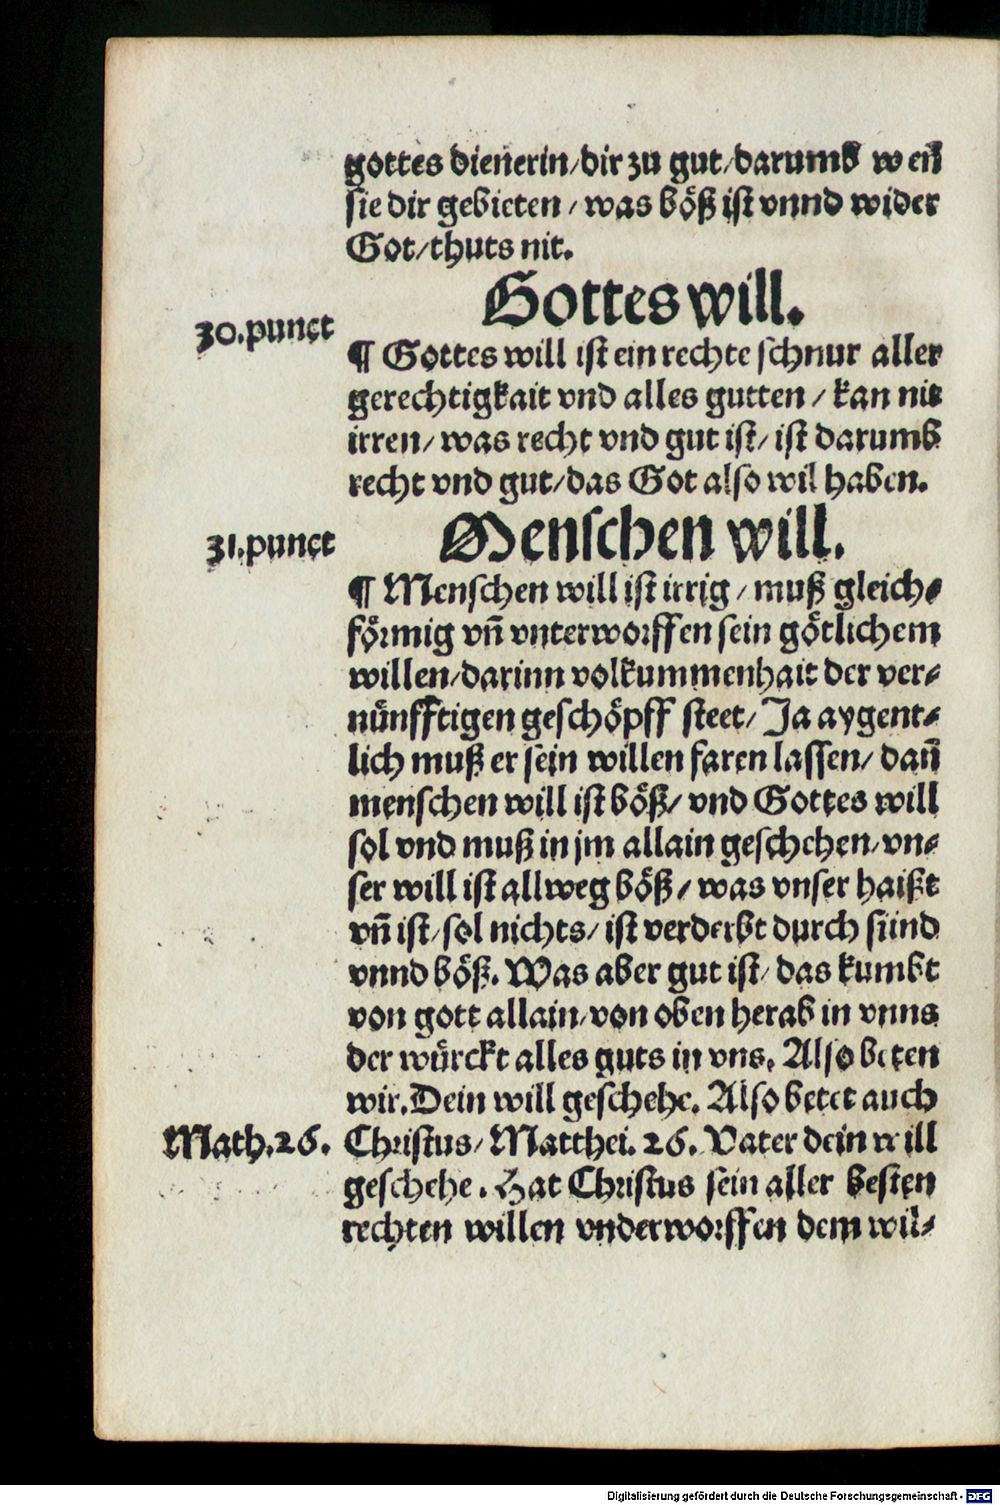 gottes dienerin/dir zu gut/darumb weñ
sie dir gebieten/was böß ist vnnd wider
Got/thuts nit.
Gottes will.
30.punct
¶ Gottes will ist ein rechte schnur aller
gerechtigkait vnd alles gutten/kan nit
irren/was recht vnd gut ist/ist darumb
recht vnd gut/das Got also wil haben.
Menschen will.
31.punct
¶ Menschen will ist irrig/muß gleich⸗
förmig vñ vnterworffen sein götlichem
willen/darinn volkummenhait der ver⸗
nünfftigen geschöpff steet/Ja aygent⸗
lich muß er sein willen faren lassen/dañ
menschen will ist böß/vnd Gottes will
sol vnd muß in jm allain geschehen/vn⸗
ser will ist allweg böß/was vnser haißt
vñ ist/sol nichts/ist verderbt durch sünd
vnnd böß. Was aber gut ist/das kumbt
von gott allain/von oben herab in vnns
der würckt alles guts in vns. Also beten
wir. Dein will geschehe. Also betet auch
Math.26. Christus/Matthei. 26. Vater dein will
geschehe. Hat Christus sein aller besten
rechten willen vnderworffen dem wil⸗
Digitalisierung gefördert durch die Deutsche Forschungsgemeinschaft - DFG